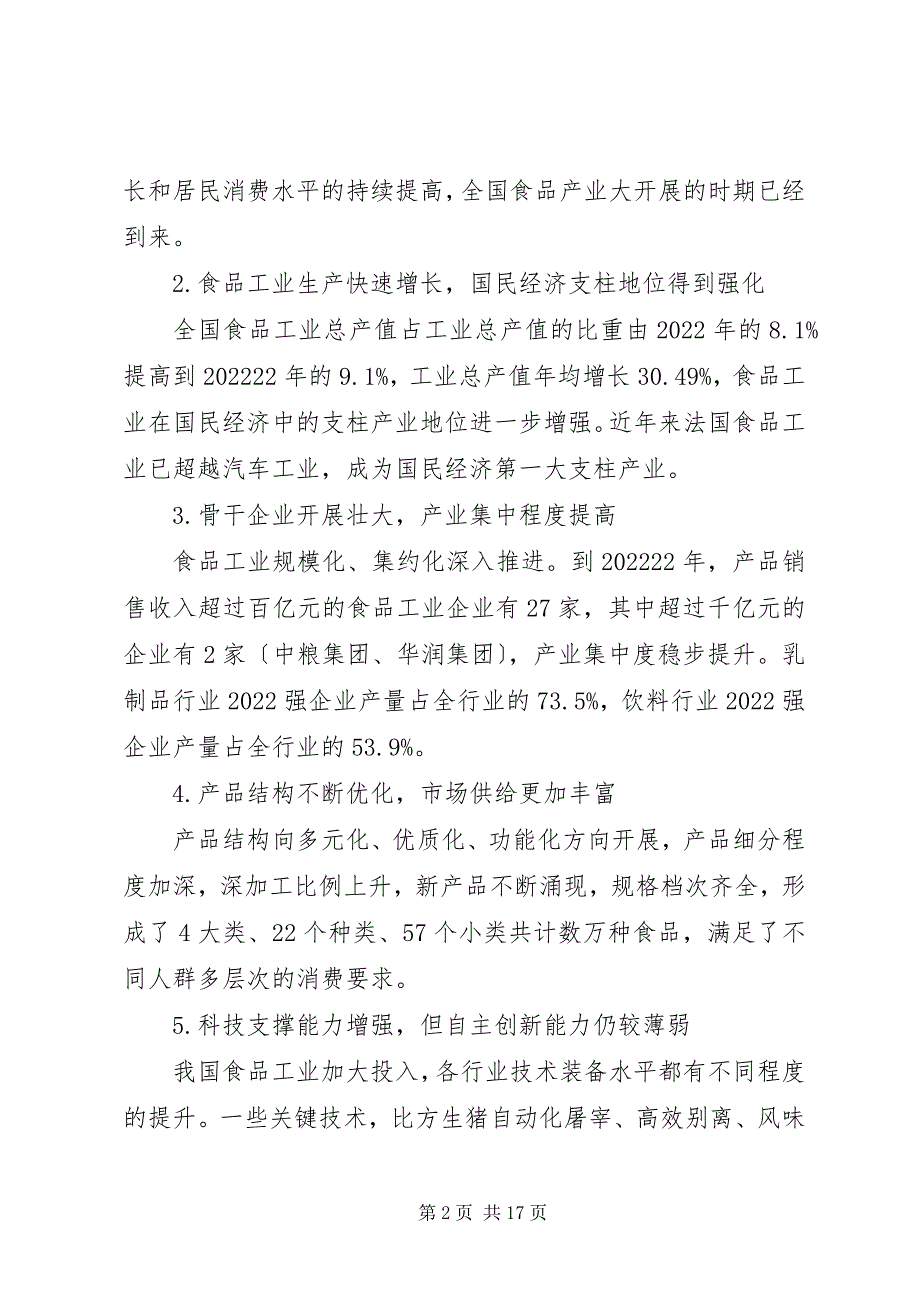 长和居民消费水平的持续提高，全国食品产业大开展的时期已经
到来。
2.食品工业生产快速增长，国民经济支柱地位得到强化
全国食品工业总产值占工业总产值的比重由 2022 年的 8.1%
提高到 202222 年的 9.1%，工业总产值年均增长 30.49%，食品工
业在国民经济中的支柱产业地位进一步增强。近年来法国食品工
业已超越汽车工业，成为国民经济第一大支柱产业。
3.骨干企业开展壮大，产业集中程度提高
食品工业规模化、集约化深入推进。到 202222 年，产品销
售收入超过百亿元的食品工业企业有 27 家，其中超过千亿元的
企业有 2 家〔中粮集团、华润集团〕，产业集中度稳步提升。乳
制品行业 2022 强企业产量占全行业的 73.5%，饮料行业 2022 强
企业产量占全行业的 53.9%。
4.产品结构不断优化，市场供给更加丰富
产品结构向多元化、优质化、功能化方向开展，产品细分程
度加深，深加工比例上升，新产品不断涌现，规格档次齐全，形
成了 4 大类、22 个种类、57 个小类共计数万种食品，满足了不
同人群多层次的消费要求。
5.科技支撑能力增强，但自主创新能力仍较薄弱
我国食品工业加大投入，各行业技术装备水平都有不同程度
的提升。一些关键技术，比方生猪自动化屠宰、高效别离、风味
第 2 页 共 17 页